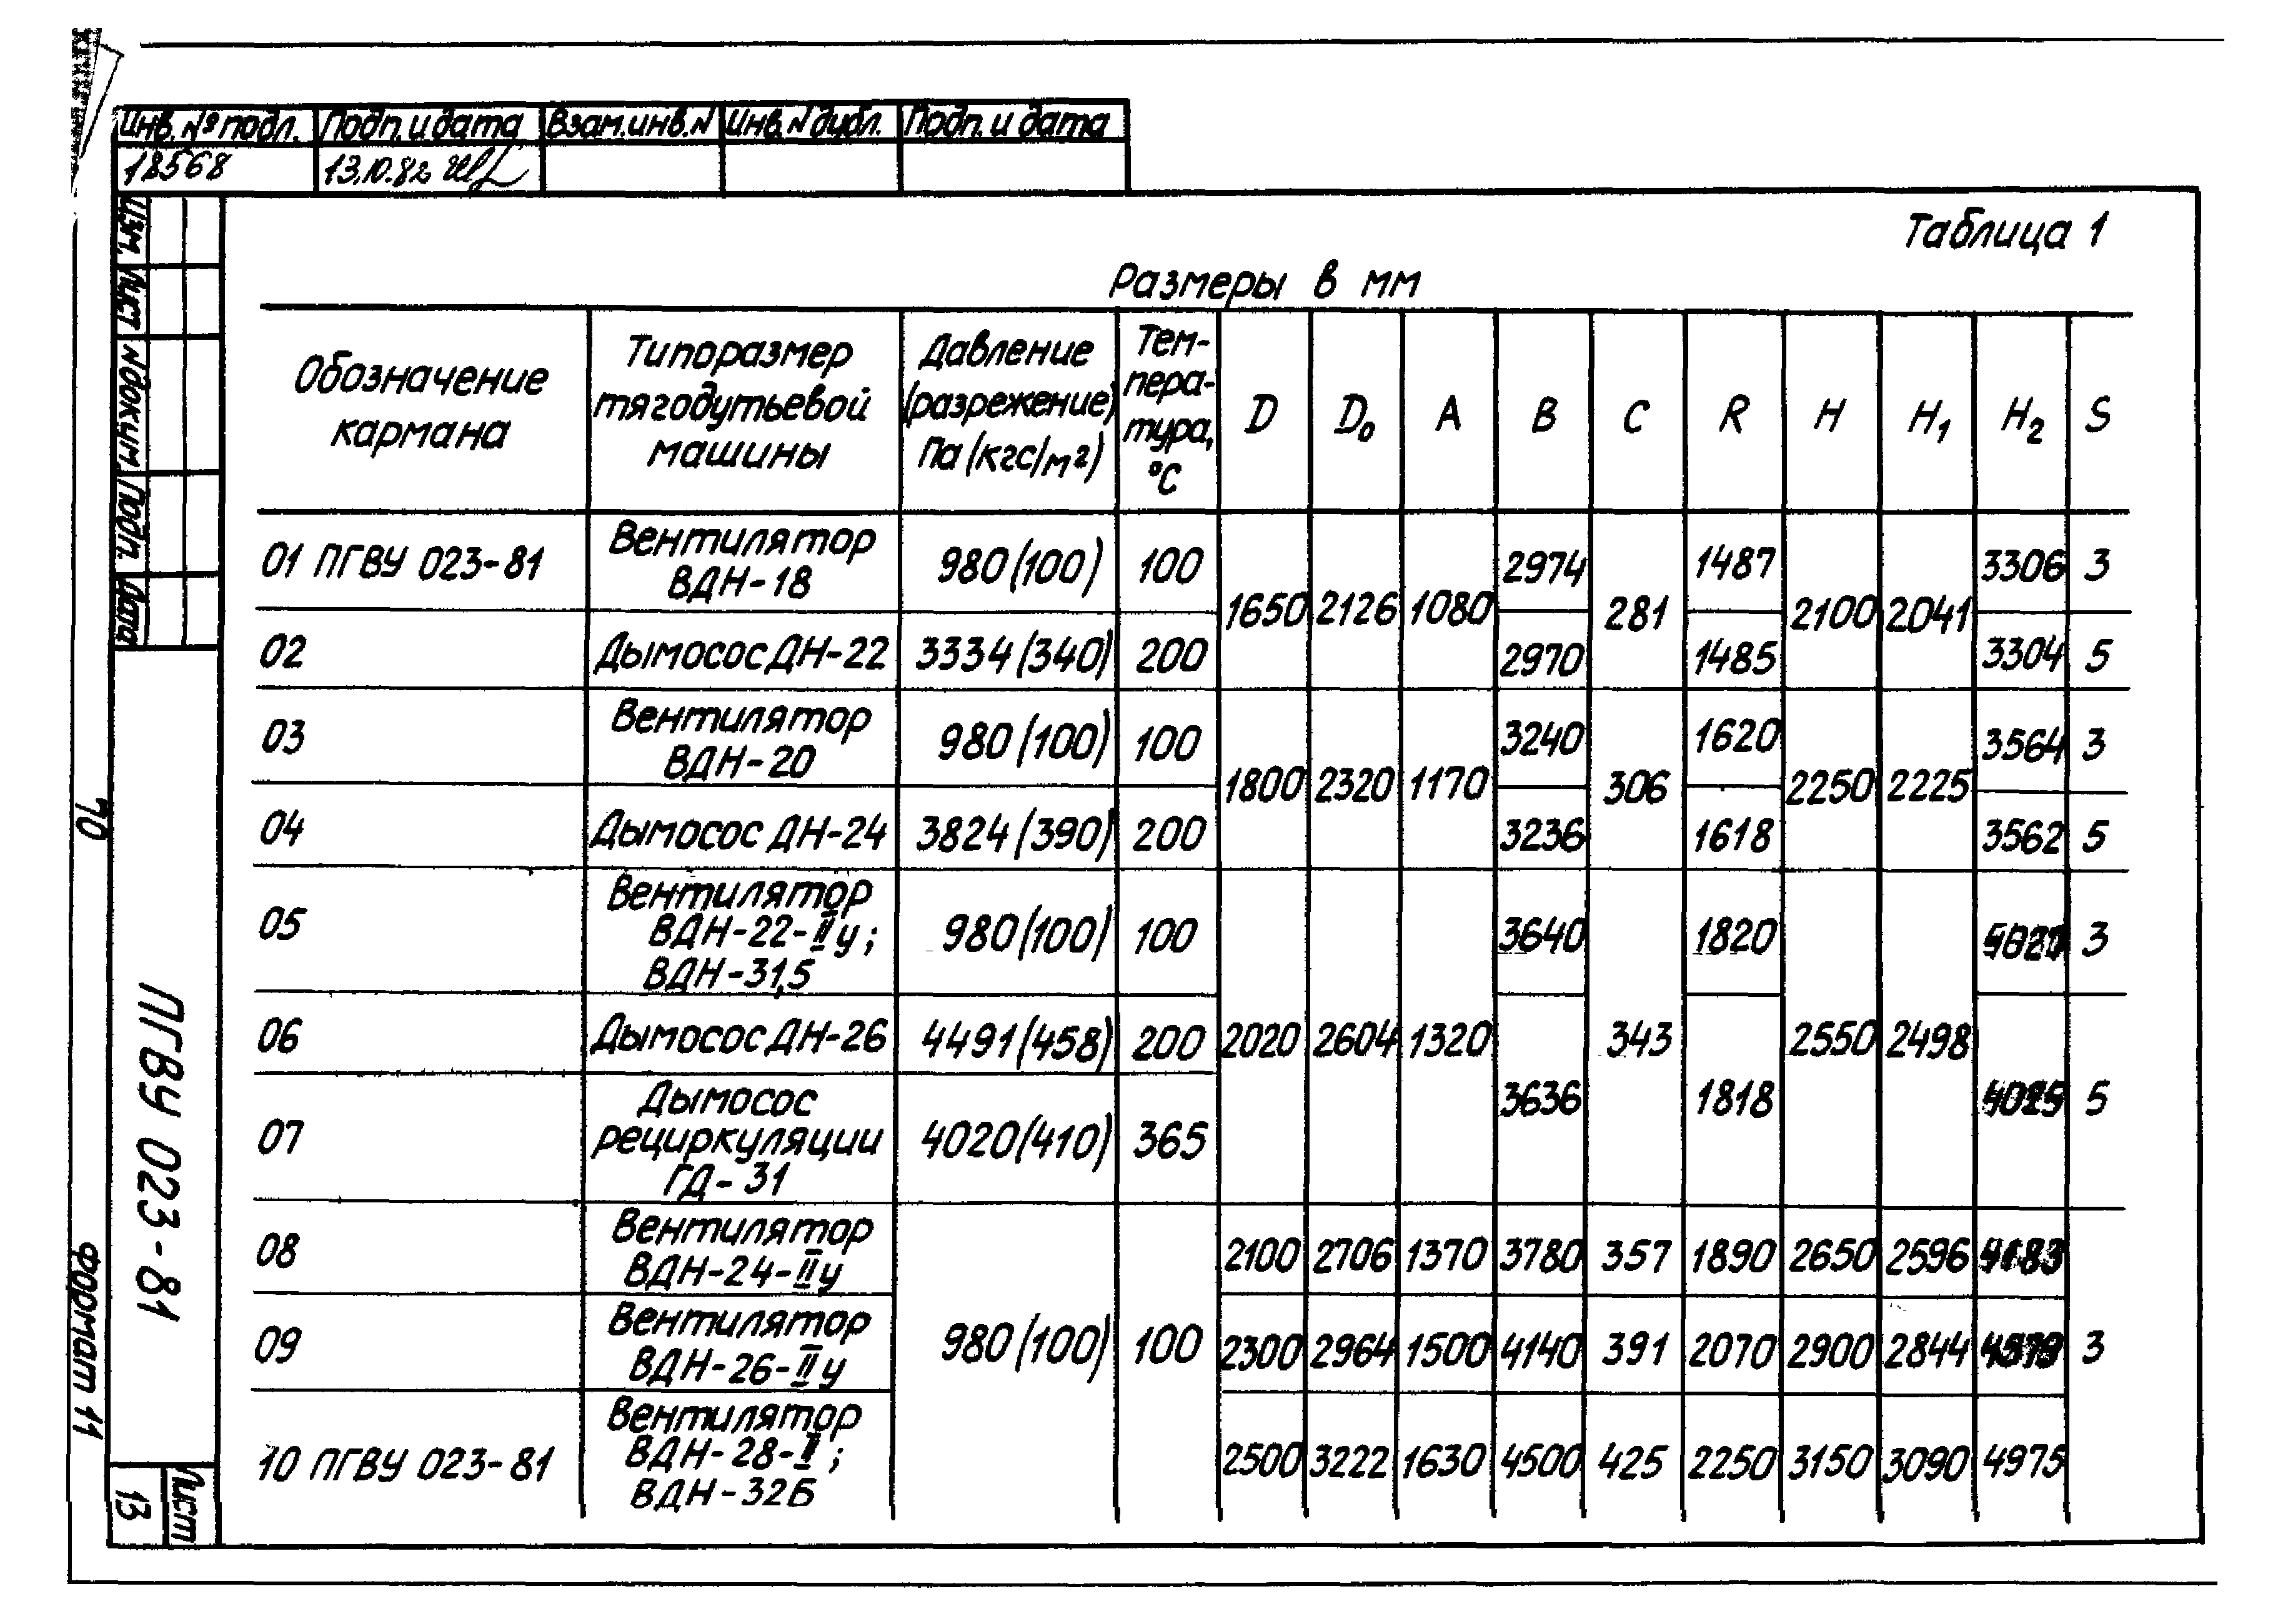 Инв. № подл. Подп. и дата Взам. инв. N Инв. N дубл. Подп. и дата
18568 13.10.82
Изм. Лист N докум. Подп. Дата
Таблица 1
Размеры в мм
Обозначение кармана | Типоразмер тягодутьевой машины | Давление (разрежение) Па (кгс/м²) | Тем-пера-тура, °С | D | D₀ | A | B | C | R | H | H₁ | H₂ | S
01 ПГВУ 023-81 | Вентилятор ВДН-18 | 980 (100) | 100 | 1650 | 2126 | 1080 | 2974 | 281 | 1487 | 2100 | 2041 | 3306 | 3
02 | Дымосос ДН-22 | 3334 (340) | 200 | 2970 | 1485 | 3304 | 5
03 | Вентилятор ВДН-20 | 980 (100) | 100 | 1800 | 2320 | 1170 | 3240 | 306 | 1620 | 2250 | 2225 | 3564 | 3
04 | Дымосос ДН-24 | 3824 (390) | 200 | 3236 | 1618 | 3562 | 5
05 | Вентилятор ВДН-22-IIу; ВДН-31,5 | 980 (100) | 100 | 3640 | 1820 | 3
06 | Дымосос ДН-26 | 4491 (458) | 200 | 2020 | 2604 | 1320 | 343 | 2550 | 2498
07 | Дымосос рециркуляции ГД-31 | 4020 (410) | 365 | 3636 | 1818 | 5
08 | Вентилятор ВДН-24-IIу | 2100 | 2706 | 1370 | 3780 | 357 | 1890 | 2650 | 2596
09 | Вентилятор ВДН-26-IIу | 980 (100) | 100 | 2300 | 2964 | 1500 | 4140 | 391 | 2070 | 2900 | 2844 | 3
10 ПГВУ 023-81 | Вентилятор ВДН-28-II; ВДН-32Б | 2500 | 3222 | 1630 | 4500 | 425 | 2250 | 3150 | 3090 | 4975
70
ПГВУ 023-81
Формат 11
Лист
13